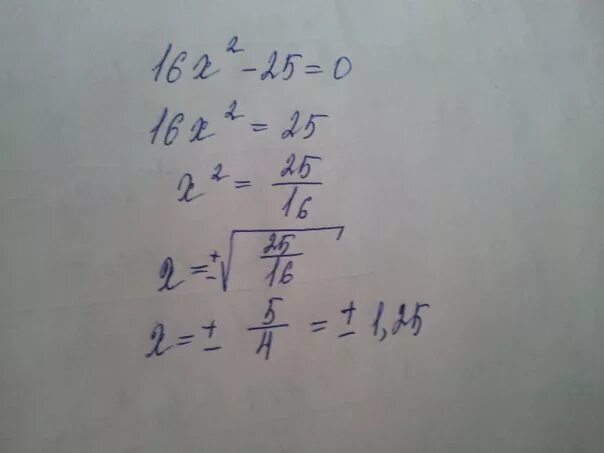 16x² - 25 = 0
16x² = 25
x² = 25/16
x = ±√(25/16)
x = ± 5/4 = ± 1,25